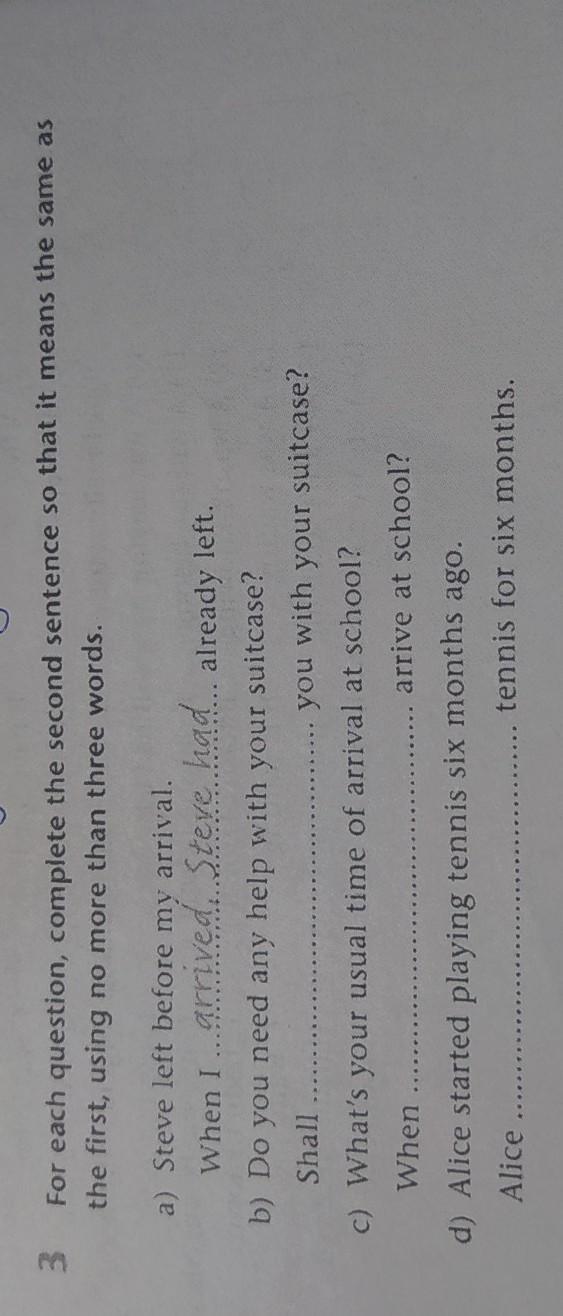 3 For each question, complete the second sentence so that it means the same as
the first, using no more than three words.
a) Steve left before my arrival.
When I ... arrived, Steve had ... already left.
b) Do you need any help with your suitcase?
Shall .................................... you with your suitcase?
c) What's your usual time of arrival at school?
When .................................... arrive at school?
d) Alice started playing tennis six months ago.
Alice .................................... tennis for six months.